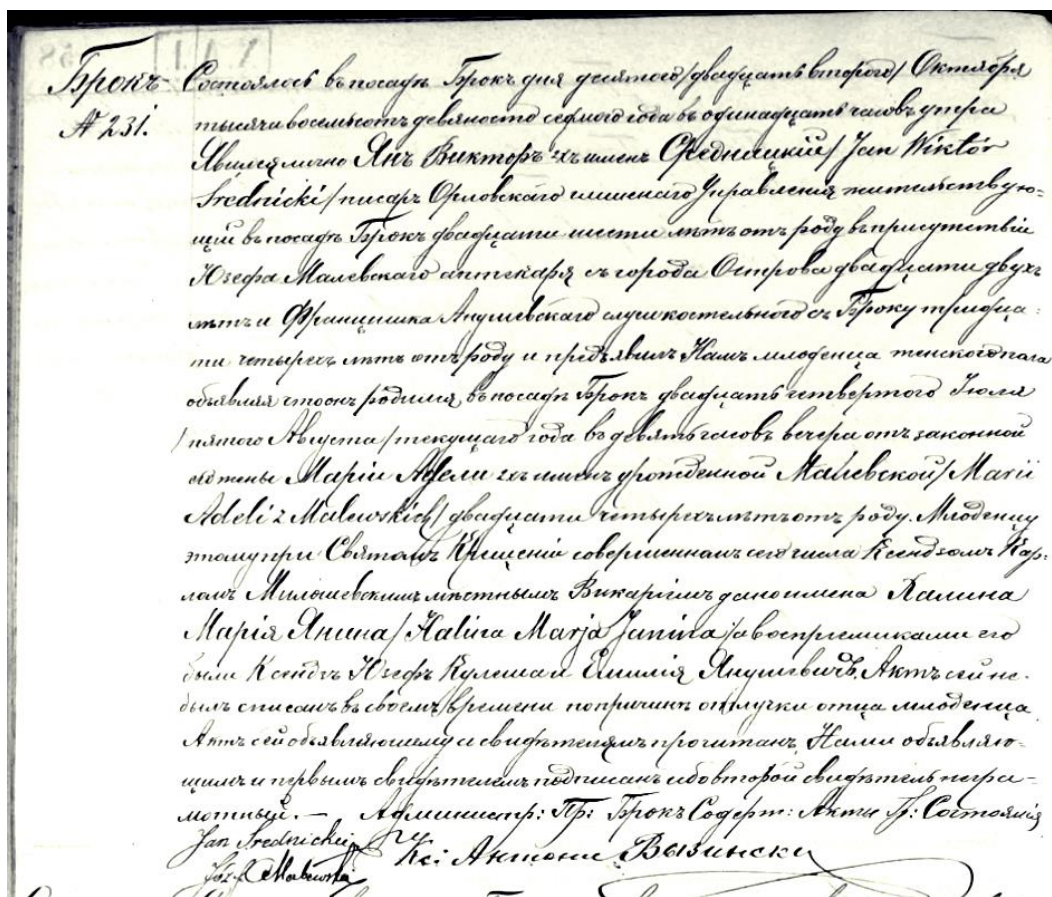 Брокъ
№ 231.
Состоялось въ посадѣ Брокъ дня десятаго /двадцать втораго/ Октября
тысяча восемьсотъ девяносто седмого года въ одинадцать часовъ утра
Явился лично Янъ Викторъ 2хъ именъ Средницкій / Jan Wiktór
Srednicki / писарь Орловскаго гминнаго Управленія жительствую-
щій въ посадѣ Брокъ двадцати шести лѣтъ отъ роду въ присутствіи
Юзефа Малевскаго аптекаря съ города Острова двадцати двухъ
лѣтъ и Францишка слуги костельного съ Броку тридца-
ти четырехъ лѣтъ отъ роду и предъявилъ Намъ младенца женского пола
объявляя что онъ родился въ посадѣ Брокъ двадцать четвертого Іюля
/ пятого Августа / текущаго года въ девять часовъ вечера отъ законной
его жены Маріи Адели 2хъ именъ урожденной Малевской / Marii
Adeli z Malewskich / двадцати четырехъ лѣтъ отъ роду. Младенцу
этому при Святомъ Крещеніи совершенномъ сего числа Ксендзомъ Кар-
ломъ Милошевскимъ мѣстнымъ Викаріемъ дано имена Галина
Марія Янина / Halina Marja Janina / а воспріемниками его
были Ксендзъ Юзефъ Кулеша и Емилія Янушевичъ. Актъ сей не
былъ списанъ въ своемъ времени по причинѣ отлучки отца младенца
Актъ сей объявляющему и свидѣтелямъ прочитанъ, Нами объявляю-
щимъ и первымъ свидѣтелемъ подписанъ ибо второй свидѣтель негра-
мотный. — Администр: Пр: Брокъ Содерж: Акты Гр: Состоянія
Jan Srednicki
Józef Malewski
Кс: Антони Вызински